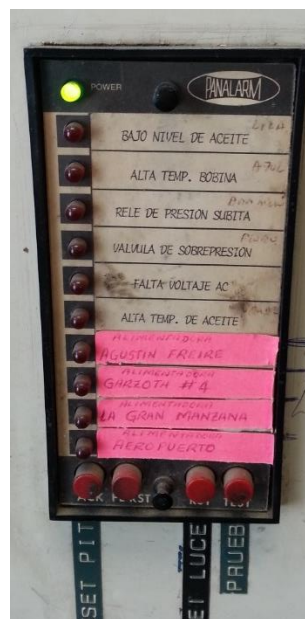 POWER
PANALARM
BAJO NIVEL DE ACEITE
ALTA TEMP. BOBINA
AZUL
RELE DE PRESION SUBITA
VALVULA DE SOBREPRESION
FALTA VOLTAJE AC
ALTA TEMP. DE ACEITE
ALIMENTADORA
AGUSTIN FREIRE
ALIMENTADORA
GARZOTA #4
ALIMENTADORA
LA GRAN MANZANA
ALIMENTADORA
AEROPUERTO
ACK
TEST
SET PIT
LUCE
PRUEB